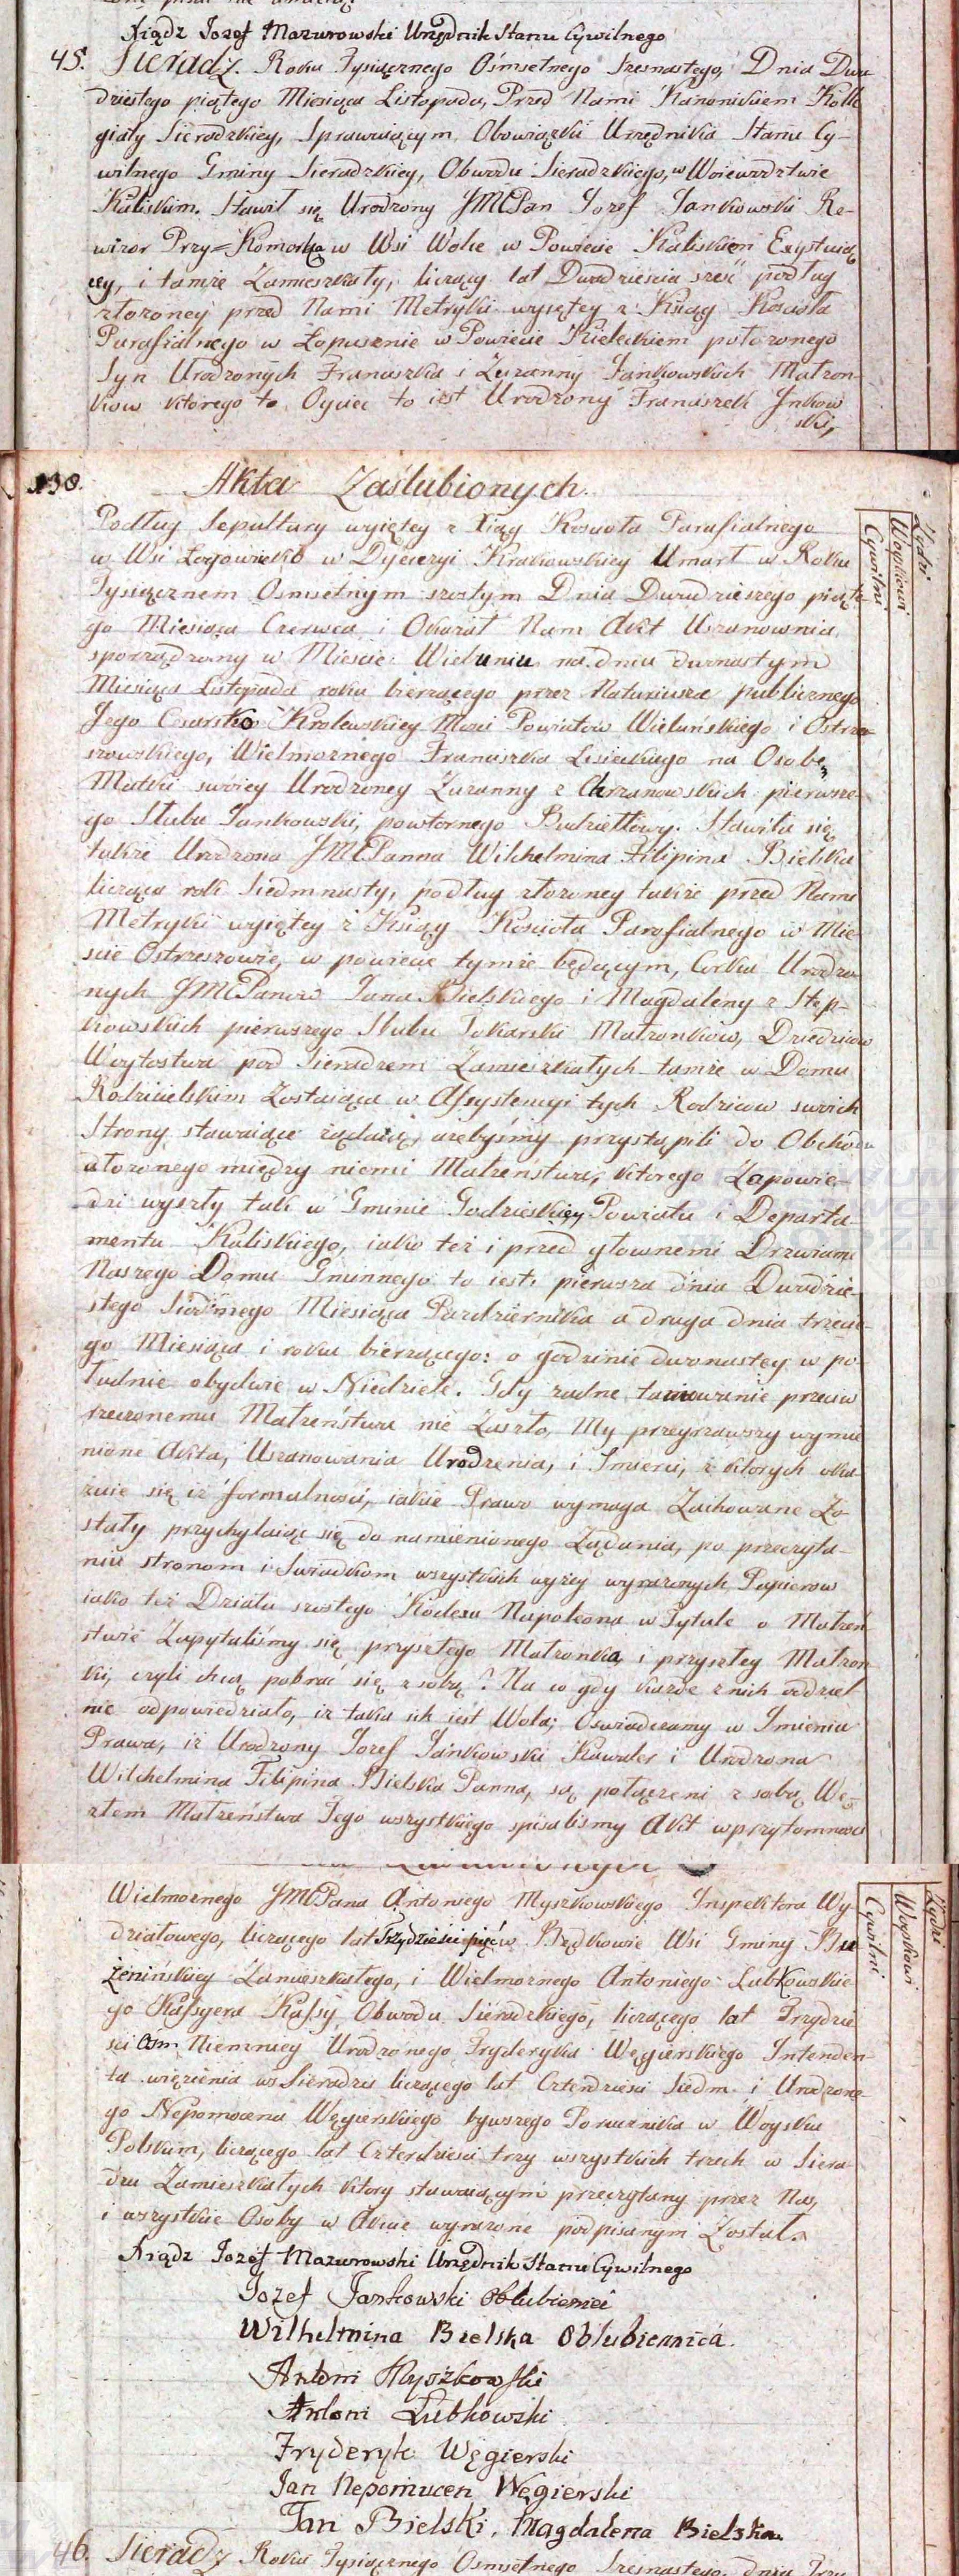 Xiądz Jozef Mazurowski Urzędnik Stanu Cywilnego
45. Sieradz. Roku Tysiącznego Ośmsetnego Szesnastego, Dnia Dwu
dziestego piątego Miesiąca Listopada, Przed Nami Kanonikiem Kolle
giaty Sieradzkiey, Sprawuiącym Obowiązki Urzędnika Stanu Cy-
wilnego Gminy Sieradzkiey, Obwodu Sieradzkiego, w Woiewodztwie
Kaliskim. Stawił się Urodzony JMCPan Jozef Jankowski Re-
wizor Przy=Komorka w Wsi Wolce w Powiecie Kaliskiem Exystuią
cey, i tamże Zamieszkały, liczący lat Dwadzieścia sześć podług
złożoney przed Nami Metryki wyiętey z Ksiąg Kościoła
Parafialnego w Łopusznie w Powiecie Kieleckiem położonego
Syn Urodzonych Franciszka i Zuzanny Jankowskich Małżon-
kow którego to Oyciec to iest Urodzony Franciszek Jnkow
ski,
138. Akta Zaślubionych.
Podług Sepultury wyiętey z Xiąg Kościoła Parafialnego
w Wsi w Dyecezyi Krakowskiey Umarł w Roku
Tysiącznem Osmsetnym szostym Dnia Dwudziestego piąte-
go Miesiąca Czerwca i Okazał Nam Akt Uszanownia
sporządzony w Mieście Wieluniu na dniu dwunastym
Miesiąca Listopada roku bierzącego przez Notariusza publicznego
Jego Cesarsko Krolewskiey Mości Powiatow Wieluńskiego i Ostrze-
szowskiego, Wielmoznego Franciszka Lisieckiego na Osobę
Matki swoiey Urodzoney Zuzanny z Chrzanowskich pierwsze-
go Slubu Jankowski, powtornego Budziettowy. Stawiła się
także Urodzona JMCPanna Wilchelmina Filipina Bielska
licząca rok Siedmnasty, podług złożoney także przed Nami
Metryki wyiętey z Księgi Kościoła Parafialnego w Mie-
ście Ostrzeszowie, w powiecie tymże będącym, Corka Urodzo
nych JMCPanow Jana Bielskiego i Magdaleny z Stęp-
kowskich pierwszego Slubu Tokarski Małżonkow, Dziedzicow
Woytostwa pod Sieradzem Zamieszkałych tamże w Domu
Rodzicielskim Zostaiąca w Assystencyi tych Rodzicow swoich
Strony stawaiące żądaią, ażebyśmy przystąpili do Obchodu
ułożonego między niemi Małżeństwa, którego Zapowie-
dzi wyszły tak w Gminie Godzieskiey Powiatu i Departa-
mentu Kaliskiego, iako też i przed głownemi Drzwiami
Naszego Domu Gminnego to iest: pierwsza dnia Dwudzie-
stego Siodmego Miesiąca Pazdziernika a druga dnia trzecie-
go Miesiąca i roku bierzącego: o godzinie dwonastey w po-
łudnie obydwie w Niedziele. Gdy żadne tamowanie przeciw
rzeczonemu Małżeństwu nie Zaszło, My przeyrzawszy wymie
nione Akta, Uszanowania Urodzenia, i Smierci, z których oka-
zuie się iż formalności, iakie Prawo wymaga Zachowane Zo-
stały przychylaiąc się do namienionego Żądania, po przeczyta-
niu stronom i Swiadkom wszystkich wyżey wyrażonych Papierow
iako też Działu szostego Kodexu Napoleona w Tytule o Małżeń
stwie Zapytaliśmy się przyszłego Małżonka, i przyszłey Małżon
ki, czyli chcą pobrać się z sobą? Na co gdy każde z nich oddziel-
nie odpowiedziało, iż taka ich iest Wola; Oswiadczamy w Imieniu
Prawa, iż Urodzony Jozef Jankowski Kawaler i Urodzona
Wilchelmina Filipina Bielska Panna, są połączeni z sobą Wę-
złem Małżeństwa Tego wszystkiego spisaliśmy Akt w przytomności
Cywilni
Woyskowi
Żydzi
Wielmoznego JMCPana Antoniego Myszkowskiego Inspektora Wy-
działowego, liczącego lat Trzydzieści pięć w Będkowie Wsi Gminy Bu
żenińskiey Zamieszkałego, i Wielmoznego Antoniego Lubkowskie
go Kassyera Kassy Obwodu Sieradzkiego, liczącego lat Trzydzie
ści Osm Niemniey Urodzonego Fryderyka Węgierskiego Intenden-
ta więzienia w Sieradzu liczącego lat Czterdzieści Siedm i Urodzone-
go Nepomucena Węgierskiego bywszego Porucznika w Woysku
Polskim, liczącego lat Czterdzieści trzy wszystkich trzech w Siera-
dzu Zamieszkałych który stawaiącym przeczytany przez Nas,
i wszystkie Osoby w Akcie wyrażone podpisanym Został.
Xiądz Jozef Mazurowski Urzędnik Stanu Cywilnego
Jozef Jankowski Oblubieniec
Wilhelmina Bielska Oblubiennica.
Antoni Myszkowski
Antoni Lubkowski
Fryderyk Węgierski
Jan Nepomucen Węgierski
Jan Bielski. Magdalena Bielska.
Cywilni
Woyskowi
Żydzi
46. Sieradz Roku Tysiącznego Osmsetnego Szesnastego, Dnia Trzy